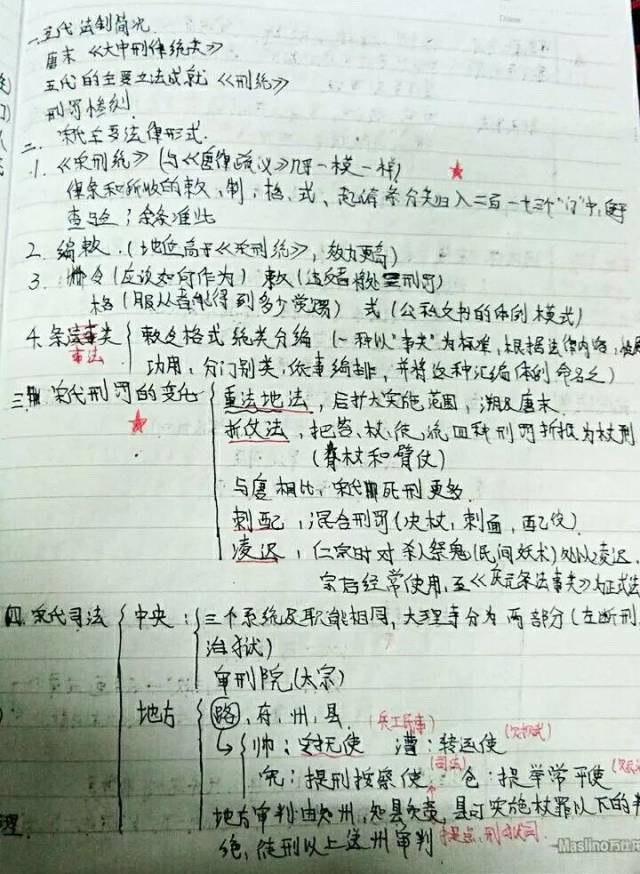 一、五代法制简况.
唐末《大中刑律统类》
五代的主要立法成就《刑统》
刑罚惨刻
二、宋代主要法律形式.
1.《宋刑统》(与《唐律疏议》几乎一模一样)
律条和所收的敕,制,格,式、起请条分类归入二百一十三个"门"中,便于
查马上;余条准此
2. 编敕.(地位高于《宋刑统》,效力更高)
3. 令(应该如何作为) 敕(违反者将处罪刑罚)
格(服从者能得到多少赏赐) 式(公私文书的体例模式)
4. 条法事类 敕令格式统类分编 (一种以"事类"为标准,根据法律内容,
事法
功用,分门别类,依事编排,并将这种汇编体例命名之)
三、宋代刑罚的变化 重法地法,后扩大实施范围,溯及唐末.
折仗法,把笞、杖、徒、流四种刑罚折抵为杖刑
(脊杖和臀仗)
与唐相比,宋代死刑更多.
刺配,混合刑罚(决杖,刺面,配役)
凌迟,仁宗时对杀人祭鬼(民间妖术)处以凌迟.
宗后经常使用,至《庆元条法事类》为正式法
四、宋代司法 中央:三个系统及职能相同,大理寺分为两部分(左断刑
治狱)
审刑院(太宗)
地方 路,府,州,县.
帅:安抚使 (兵工民事) 漕:转运使
宪:提刑按察使 (司法) 仓:提举常平使
地方审判由知州,知县负责,县可实施杖罪以下的判
绝,徒刑以上送州审判 提点刑狱司
理.
Maslino